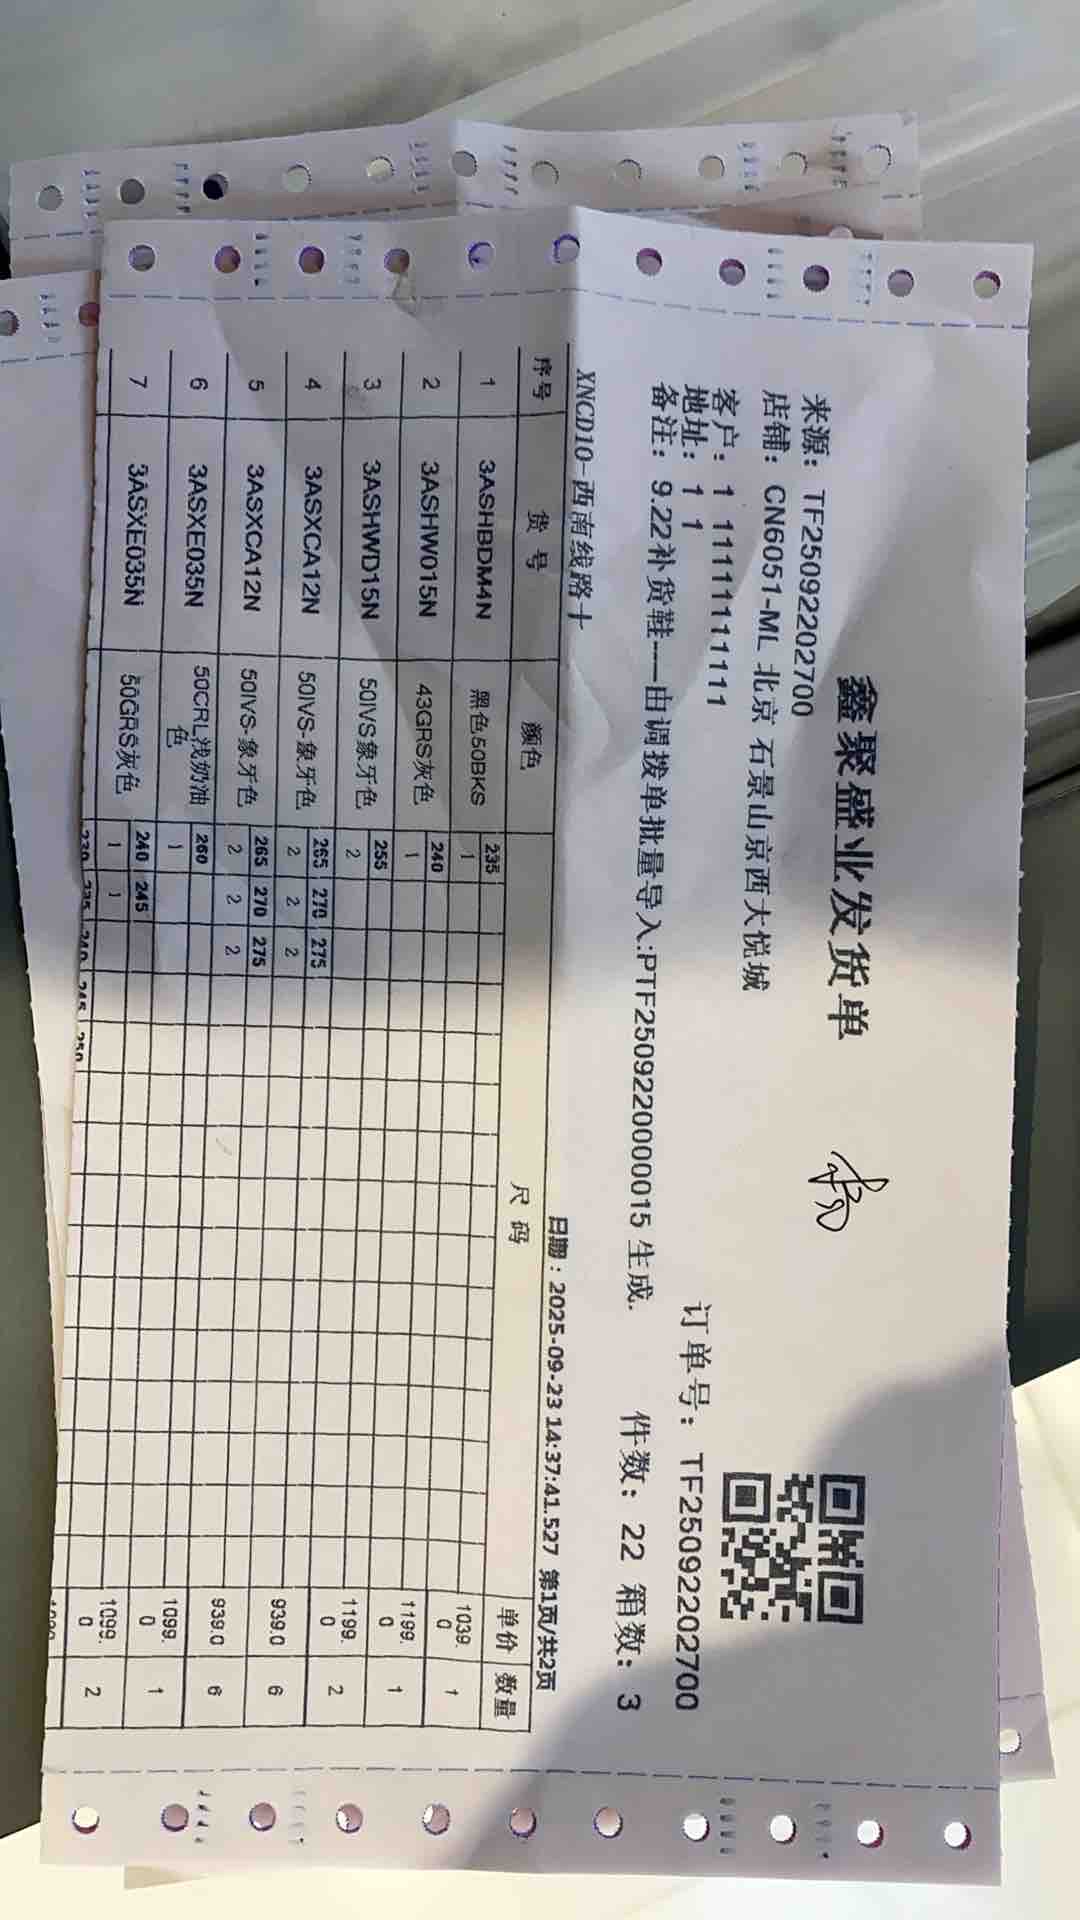 鑫聚盛业发货单
来源：TF2509220​2700
店铺：CN6051-ML 北京 石景山京西大悦城
客户：1 11111111111
地址：1 1
订单号：TF25092202700
备注：9.22补货鞋----由调拨单批量导入:PTF2509220000015 生成.
件数：22 箱数：3
XNCD10-西南线路十
日期：2025-09-23 14:37:41.527 第1页/共2页
序号 货号 颜色 尺码 单价 数量
1 3ASHBDM4N 黑色50BKS 235 1039.0 1
1
2 3ASHW015N 43GRS灰色 240 1199.0 1
1
3 3ASHWD15N 50IVS象牙色 255 1199.0 2
2
4 3ASXCA12N 50IVS-象牙色 265 270 275 939.0 6
2 2 2
5 3ASXCA12N 50IVS-象牙色 265 270 275 939.0 6
2 2 2
6 3ASXE035N 50CRL浅奶油色 260 1099.0 1
1
7 3ASXE035N 50GRS灰色 240 245 1099.0 2
1 1
230 235 240 245 250